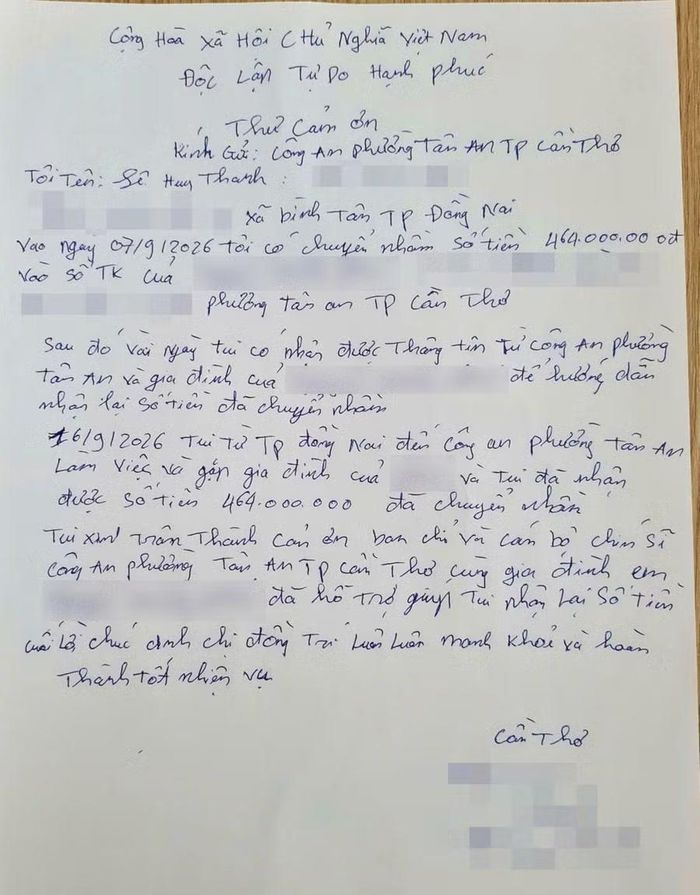 Cộng Hoà Xã Hội Chủ Nghĩa Việt Nam
Độc Lận Tự Do Hạnh Phúc
Thư Cảm ơn
Kính Gửi: Công An phường Tân An TP Cần Thơ
Tôi Tên: Lê Huy Thanh :
xã bình Tân TP Đồng Nai
Vào ngày 07/9/2026 tôi có chuyển nhầm số tiền 464.000.00 0đ
vào số TK của
phường tân an TP Cần Thơ
Sau đó vài ngày tui có nhận được Thông tin từ công An phường
Tân An và gia đình của để hướng dẫn
nhận lại số tiền đã chuyển nhầm
16/9/2026 Tui từ TP đồng Nai đến công an phường Tân An
Làm việc và gặp gia đình của và tui đã nhận
được số tiền 464.000.000 đã chuyển nhầm
Tui xin trân Thành cảm ơn ban chỉ và cán bộ chiến sĩ
công An phường Tân An TP Cần Thơ cùng gia đình em
đã hỗ trợ giúp Tui nhận lại số tiền
cuối lời chúc anh chi đồng Trí luôn luôn mạnh khoẻ và hoàn
Thành tốt nhiện vụ
Cần Thơ